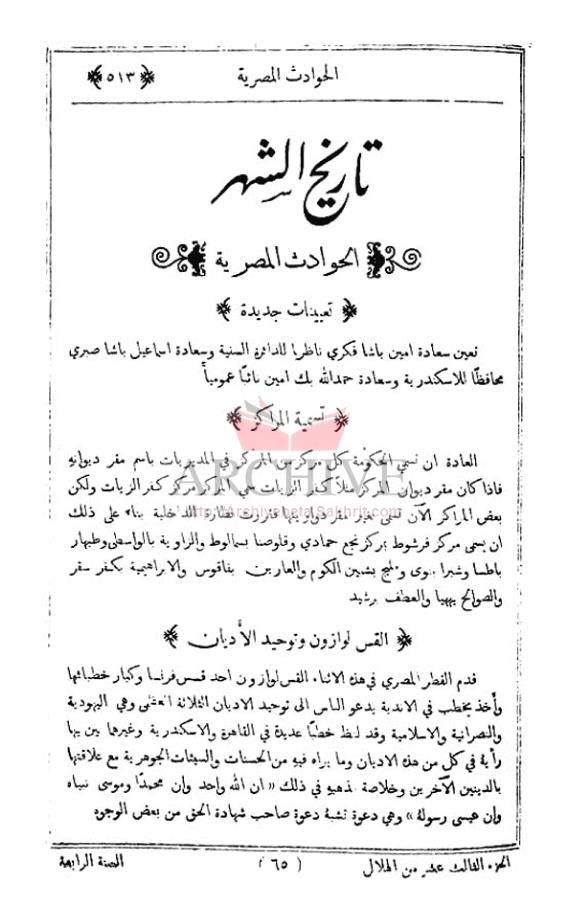 الحوادث المصرية
﴿٥١٣﴾
تاريخ الشهر
الحوادث المصرية
﴿ تعيينات جديدة ﴾
تعين سعادة امين باشا فكري ناظرا للدائرة السنية وسعادة اسماعيل باشا صبري
محافظا للاسكندرية وسعادة حمدالله بك امين نائبا عموميا
﴿ تسمية المراكز ﴾
العادة ان تسمي الحكومة كل مركز من المراكز في المديريات باسم مقر ديوانه
فاذا كان مقر ديوان المركز مثلا كفر الزيات سمي المركز مركز كفر الزيات ولكن
بعض المراكز الآن تسمى بغير مقر دواوينها فقررت نظارة الداخلية بناء على ذلك
ان يسمى مركز فرشوط بمركز نجع حمادي وقلوصنا بسمالوط والزاوية بالواسطى وطبهار
باطسا وشبرا بنوى ومليج بشبين الكوم والعارين بفاقوس والابراهيمية بكفر سقر
والصوالح بههيا والعطف برشيد
ARCHIVE
http://Archivebeta.Sakhrit.com
﴿ القس لوازون وتوحيد الأديان ﴾
قدم القطر المصري في هذه الاثناء القس لوازون احد قسس فرنسا وكبار خطبائها
وأخذ يخطب في الاندية يدعو الناس الى توحيد الاديان الثلاثة العظمى وهي اليهودية
والنصرانية والاسلامية وقد لفظ خطبا عديدة في القاهرة والاسكندرية وغيرهما بين بها
رأيه في كل من هذه الاديان وما يراه فيه من الحسنات والسيئات الجوهرية مع علاقتها
بالدينين الآخرين وخلاصة مذهبه في ذلك « ان الله واحد وان محمدا وموسى نبياه
وان عيسى رسوله » وهي دعوة تشبه دعوة صاحب شهادة الحق من بعض الوجوه
الجزء الثالث عشر من الهلال
(٦٥)
السنة الرابعة